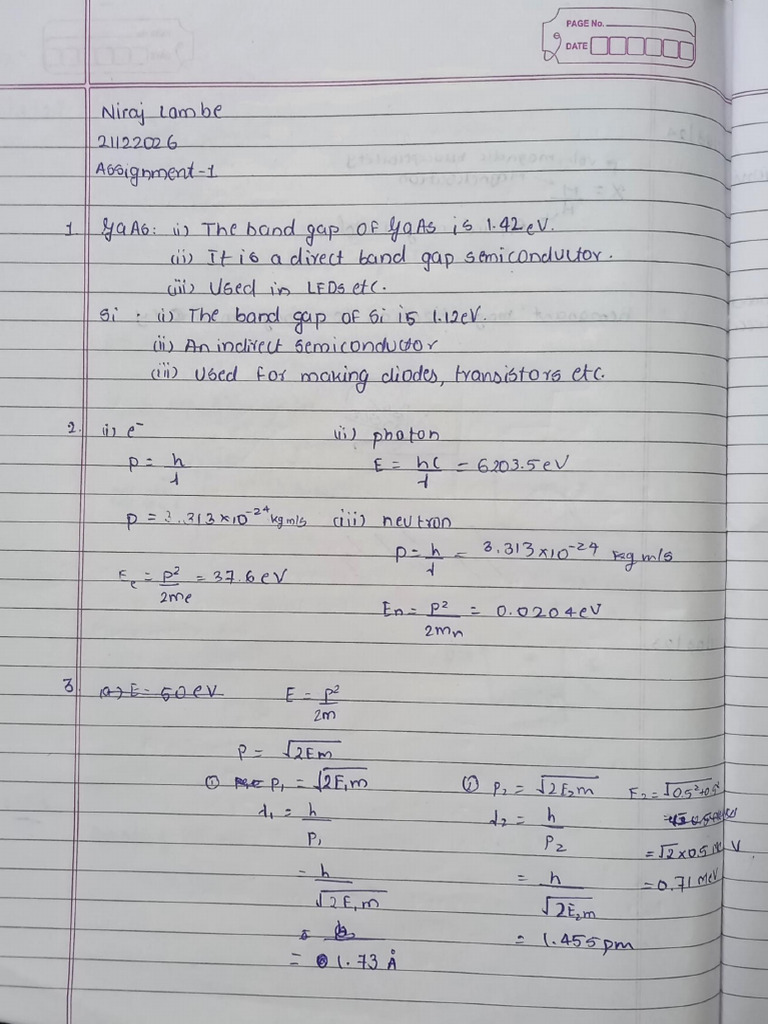 PAGE No.
DATE
Niraj Lambe
21122026
Assignment-1
1. GaAs: (i) The band gap of GaAs is 1.42 eV.
(ii) It is a direct band gap semiconductor.
(iii) Used in LEDs etc.
Si : (i) The band gap of Si is 1.12eV.
(ii) An indirect semiconductor
(iii) Used for making diodes, transistors etc.
2. (i) e⁻
p = h/λ
p = 3.313×10⁻²⁴ kg m/s
Ee = p²/2me = 37.6 eV
(ii) photon
E = hc/λ = 6203.5 eV
(iii) neutron
p = h/λ = 3.313×10⁻²⁴ kg m/s
En = p²/2mn = 0.0204 eV
3. (a) E = 50 eV
E = p²/2m
p = √2Em
① p₁ = √2E₁m
λ₁ = h/p₁
= h/√2E₁m
= 1.73 Å
① p₂ = √2E₂m
λ₂ = h/p₂
= h/√2E₂m
= 1.455 pm
E₂ = √0.5²+0.5²
= √2 × 0.5 MeV
= 0.71 MeV